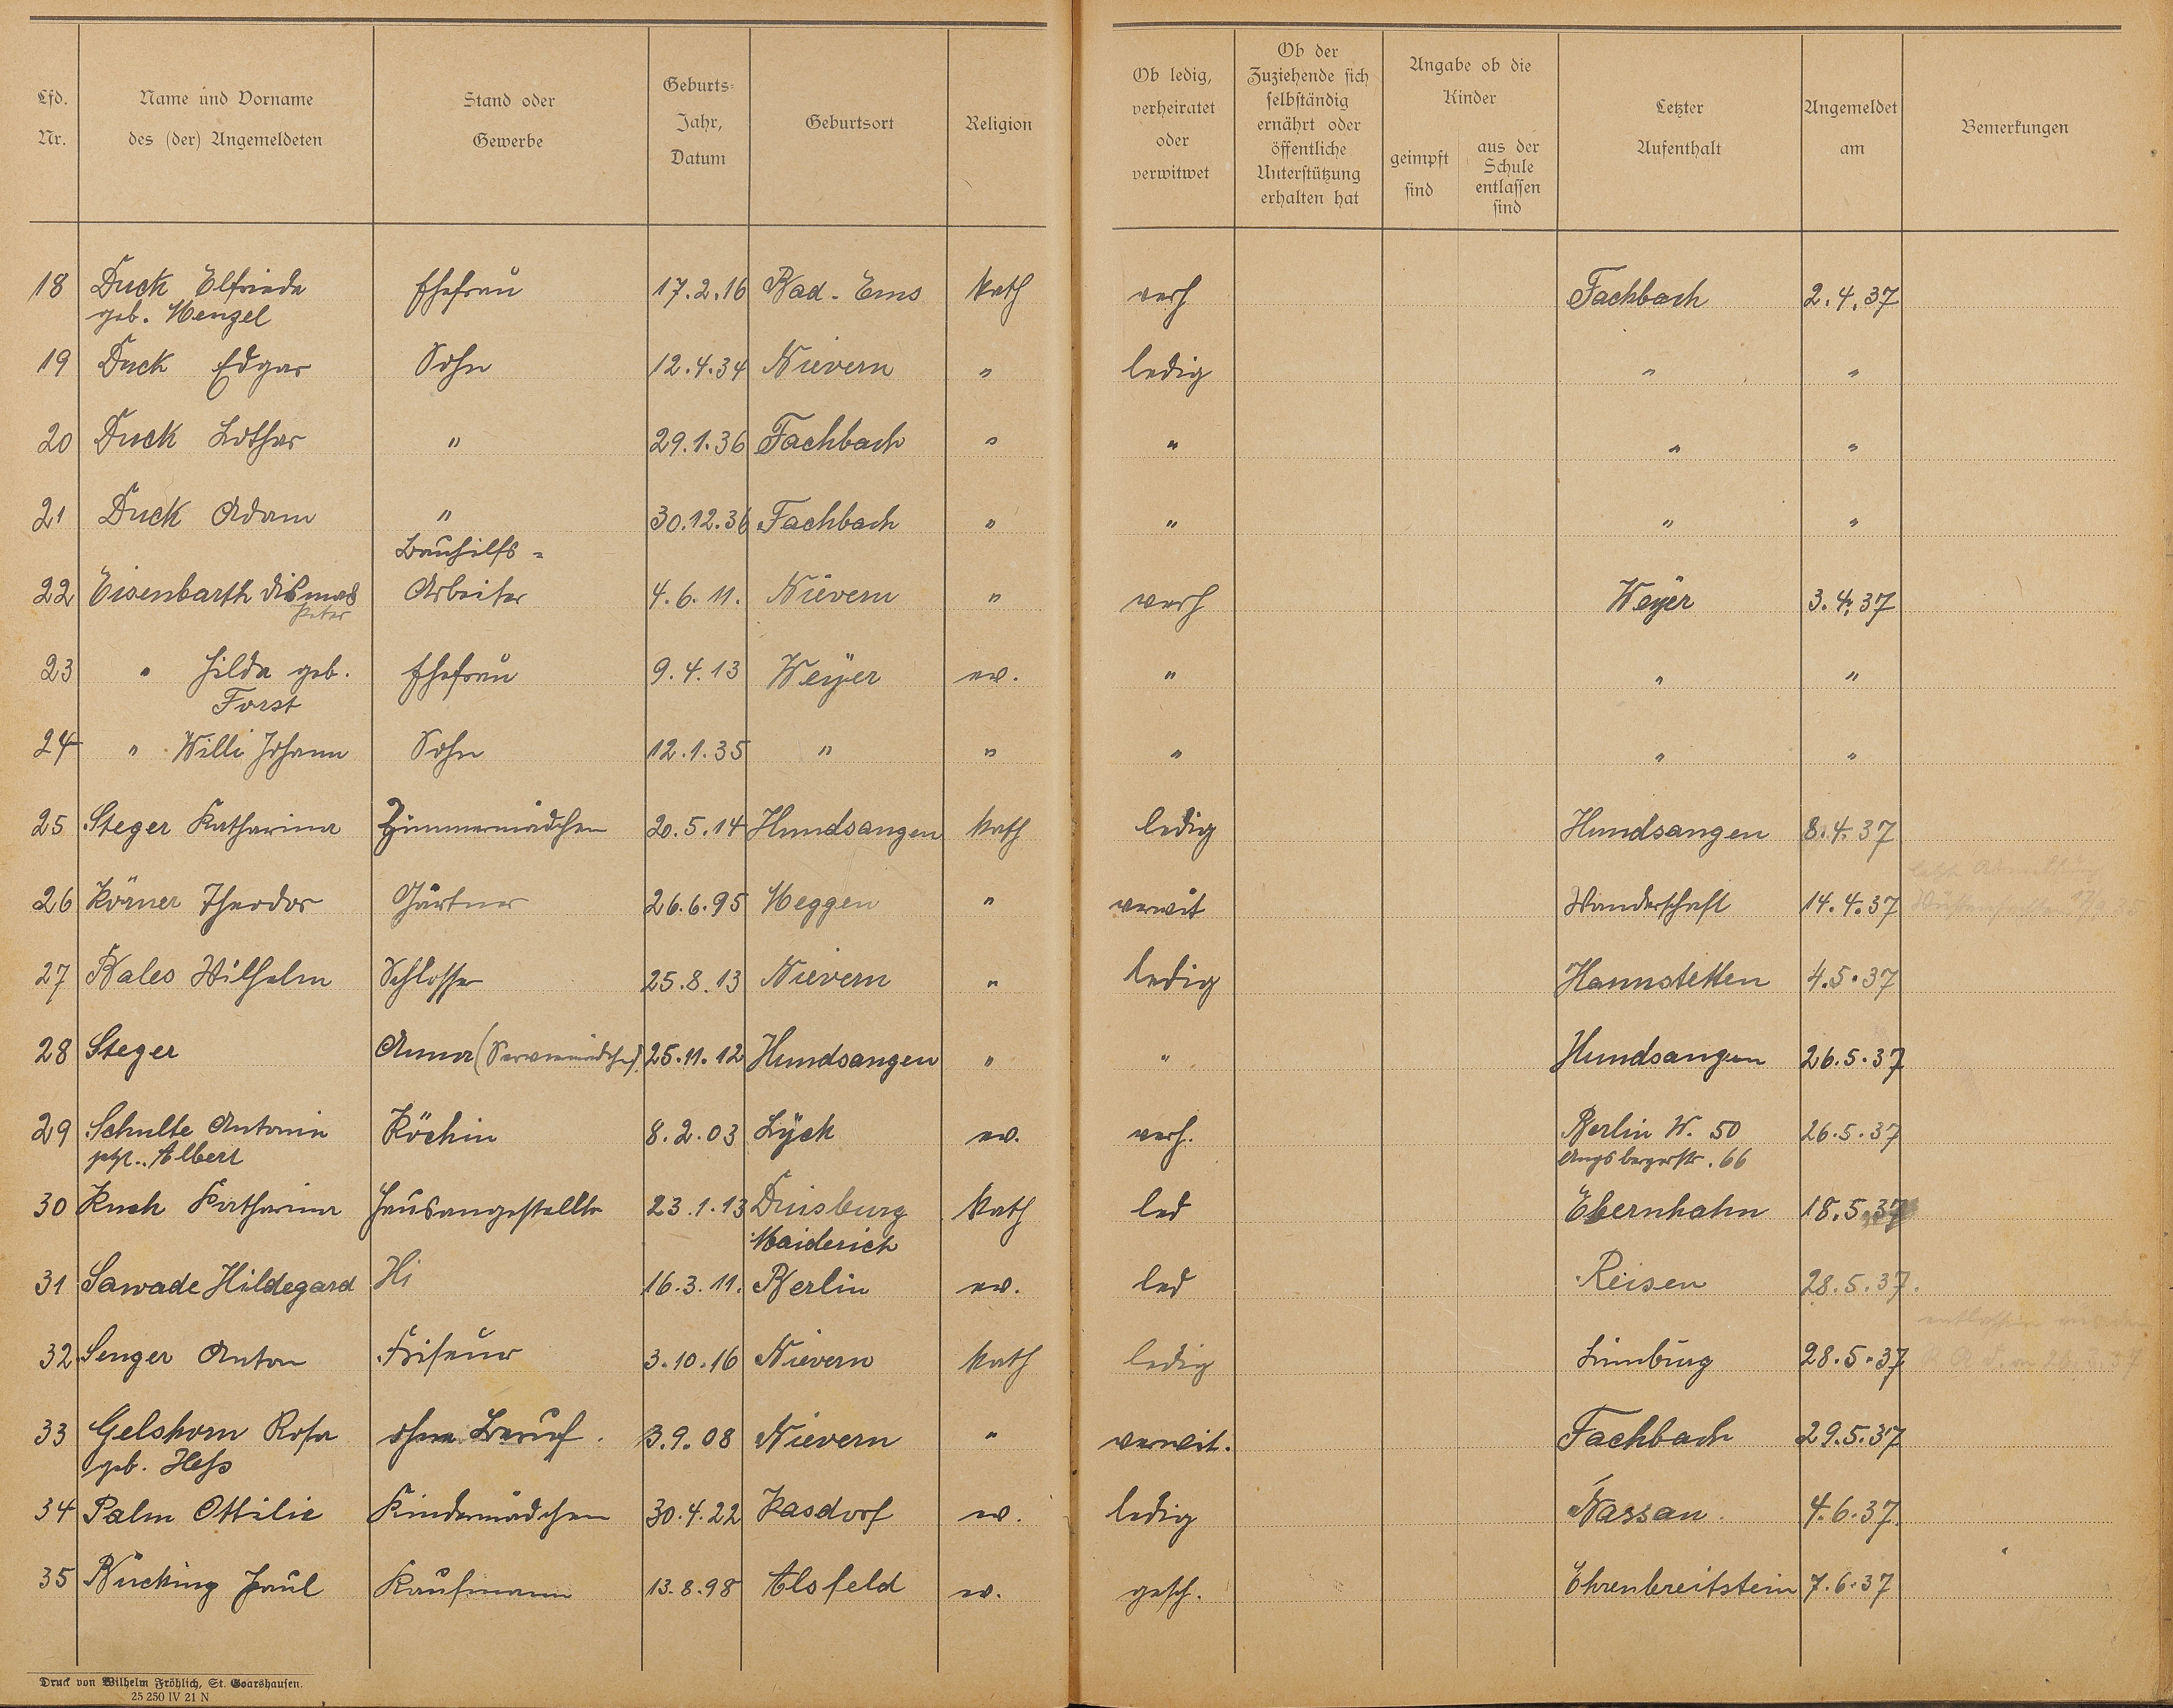 Lfd. Nr.
Name und Vorname des (der) Angemeldeten
Stand oder Gewerbe
Geburts- Jahr, Datum
Geburtsort
Religion
Ob ledig, verheiratet oder verwitwet
Ob der Zuziehende sich selbständig ernährt oder öffentliche Unterstützung erhalten hat
Angabe ob die Kinder
geimpft sind
aus der Schule entlassen sind
Letzter Aufenthalt
Angemeldet am
Bemerkungen
18 Duck Elfriede Ehefrau 17.2.16 Bad-Ems kath verh Fachbach 2.4.37
geb. Menzel
19 Duck Edgar Sohn 12.4.34 Nievern " ledig " "
20 Duck Lothar " 29.1.36 Fachbach " " " "
21 Duck Adam " 30.12.36 Fachbach " " " "
Bauhilfs-
22 Eisenbarth Dismas Arbeiter 4.6.11. Nievern " verh Weyer 3.4.37
Peter
23 " Hilda geb. Ehefrau 9.4.13 Weyer ev. " " "
Forst
24 " Willi Johann Sohn 12.1.35 " " " " "
25 Steger Katharina Zimmermädchen 20.5.14 Hundsangen kath ledig Hundsangen 8.4.37
26 Körner Theodor Gärtner 26.6.95 Meggen " verwit Wanderschaft 14.4.37
27 Bales Wilhelm Schlosser 25.8.13 Nievern " ledig Hannstetten 4.5.37
28 Steger Anna (Serviermädchen) 25.11.12 Hundsangen " " Hundsangen 26.5.37
29 Schulte Antonie Köchin 8.2.03 Lyck ev. verh. Berlin W. 50 26.5.37
Albert Augsburgerstr. 66
30 Kuch Katharina Hausangestellte 23.1.13 Duisburg kath led Ebernhahn 18.5.37
Maiderich
31 Sawade Hildegard Hi 16.3.11. Berlin ev. led Reisen 28.5.37.
32 Senger Anton Friseur 3.10.16 Nievern kath ledig Limburg 28.5.37
33 Gelshorn Rosa ohne Beruf. 3.9.08 Nievern " verwit. Fachbach 29.5.37
geb. Heß
34 Palm Ottilie Kindermädchen 30.4.22 Kasdorf ev. ledig Nassau. 4.6.37.
35 Bücking Paul Kaufmann 13.8.98 Alsfeld ev. gesch. Ehrenbreitstein 7.6.37
Druck von Wilhelm Fröhlich, St. Goarshausen.
25 250 IV 21 N